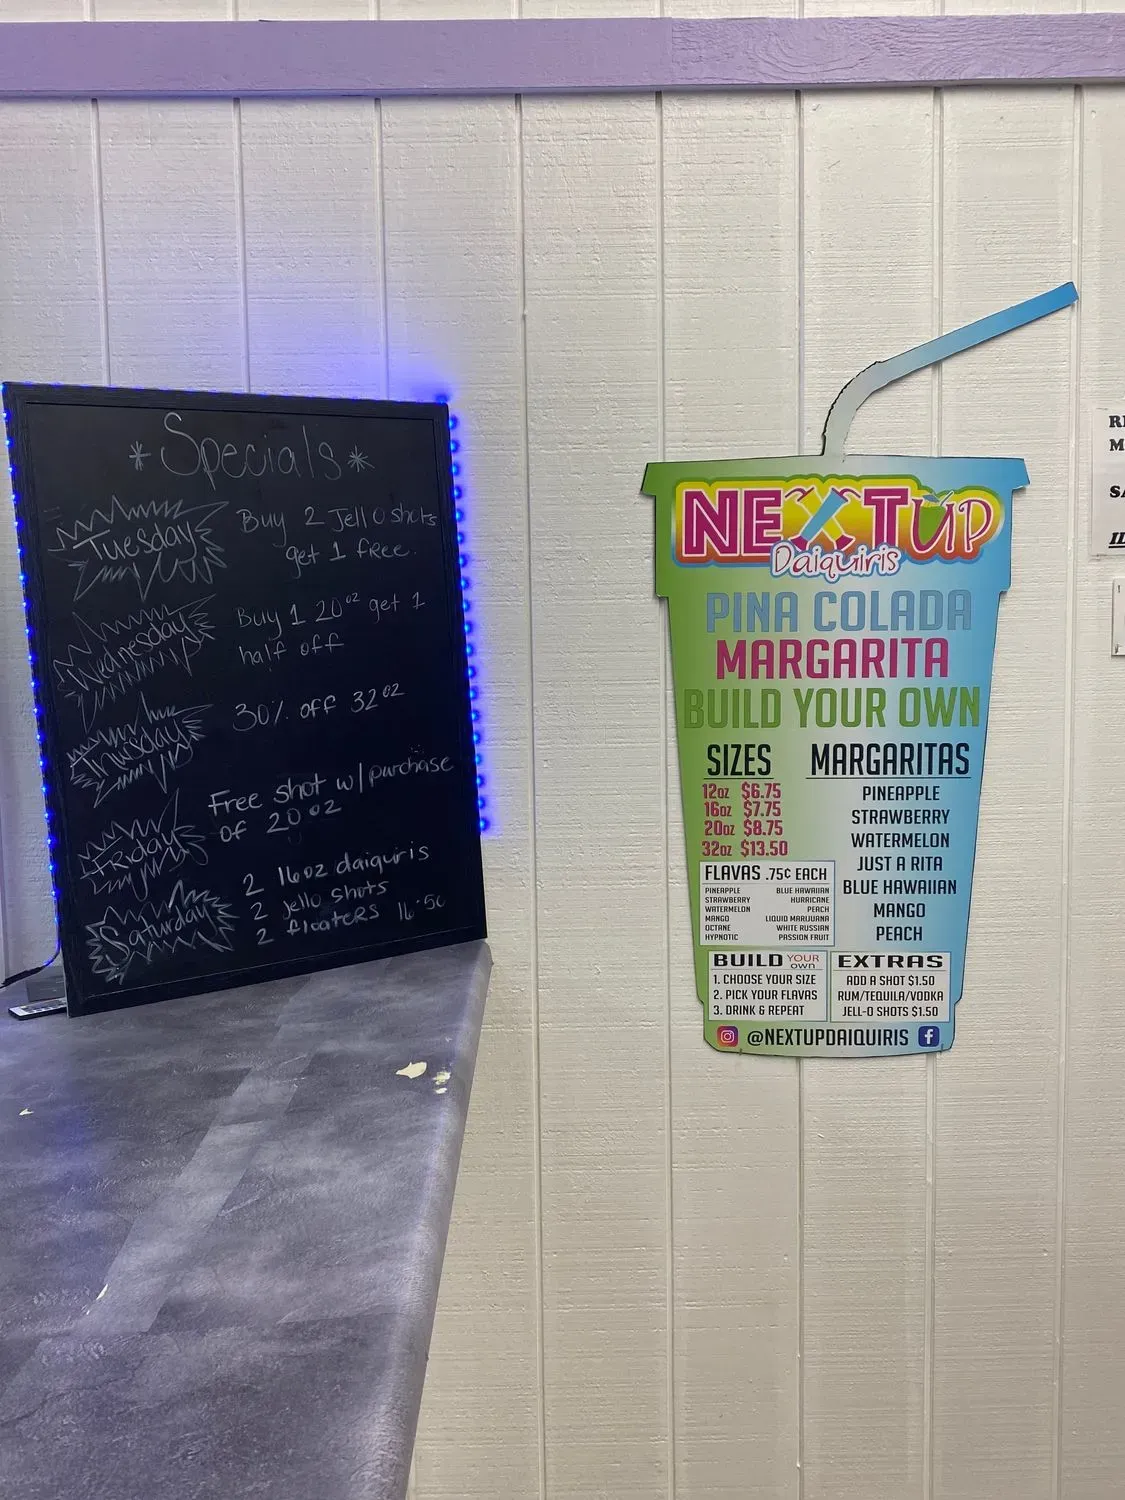 * Specials *
Tuesday
Buy 2 Jello shots
get 1 free.
Wednesday
Buy 1 20oz get 1
half off
Thusday
30% off 32oz
Friday
Free shot w/purchase
of 20oz
Saturday
2 16oz daiquiris
2 jello shots
2 floaters 16.50
NEXTUP
Daiquiris
PINA COLADA
MARGARITA
BUILD YOUR OWN
SIZES
12oz $6.75
16oz $7.75
20oz $8.75
32oz $13.50
MARGARITAS
PINEAPPLE
STRAWBERRY
WATERMELON
JUST A RITA
BLUE HAWAIIAN
MANGO
PEACH
FLAVAS .75¢ EACH
PINEAPPLE
STRAWBERRY
WATERMELON
MANGO
OCTANE
HYPNOTIC
BLUE HAWAIIAN
HURRICANE
PEACH
LIQUID MARIJUANA
WHITE RUSSIAN
PASSION FRUIT
BUILD YOUR OWN
1. CHOOSE YOUR SIZE
2. PICK YOUR FLAVAS
3. DRINK & REPEAT
EXTRAS
ADD A SHOT $1.50
RUM/TEQUILA/VODKA
JELL-O SHOTS $1.50
@NEXTUPDAIQUIRIS